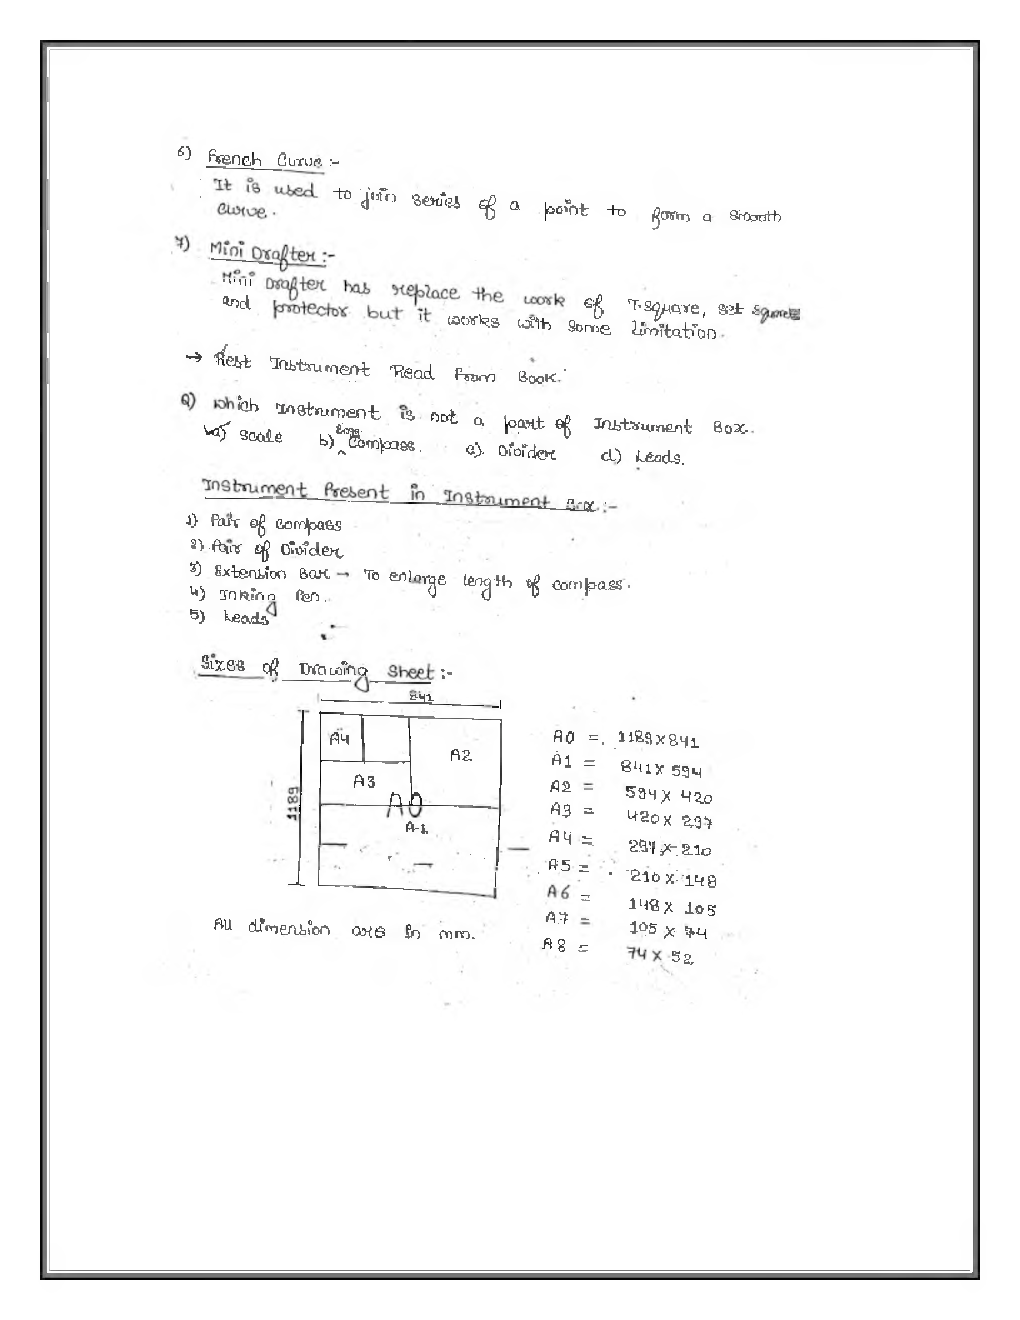 6) French Curve :-
It is used to join series of a point to form a smooth
curve.
7) Mini Drafter :-
Mini Drafter has replace the work of T-Square, set square
and protector but it works with some limitation.
→ Rest Instrument Read from Book.
Q) which Instrument is not a part of Instrument Box.
a) Scale b) Compass. c) Divider d) Leads.
Instrument Present in Instrument Box :-
1) Pair of compass
2) Pair of Divider
3) Extension Bar → To enlarge length of compass.
4) Inking Pen.
5) Leads
Sizes of Drawing Sheet :-
841
1189
A4
A2
A3
A0
A1
A0 = 1189 x 841
A1 = 841 x 594
A2 = 594 x 420
A3 = 420 x 297
A4 = 297 x 210
A5 = 210 x 148
A6 = 148 x 105
A7 = 105 x 74
A8 = 74 x 52
All dimension are in mm.